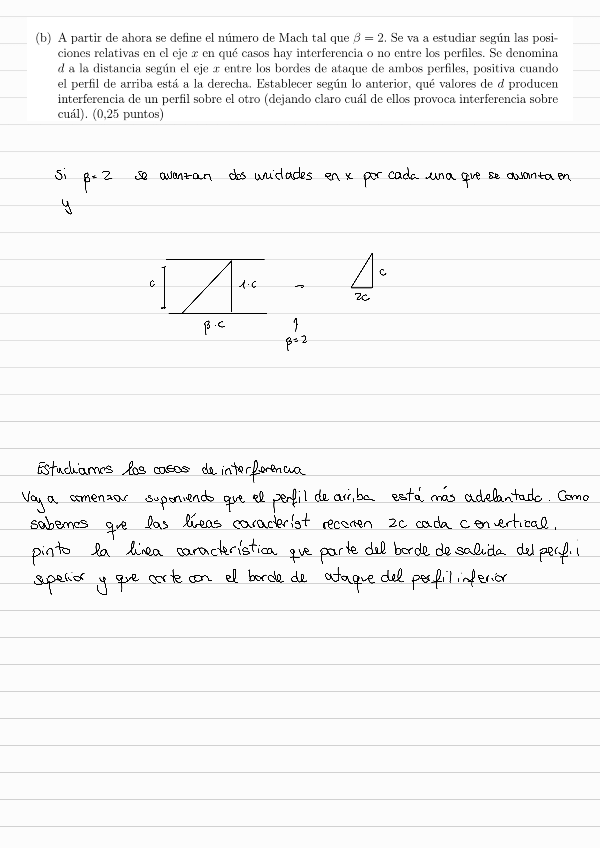 (b) A partir de ahora se define el número de Mach tal que β = 2. Se va a estudiar según las posi-
ciones relativas en el eje x en qué casos hay interferencia o no entre los perfiles. Se denomina
d a la distancia según el eje x entre los bordes de ataque de ambos perfiles, positiva cuando
el perfil de arriba está a la derecha. Establecer según lo anterior, qué valores de d producen
interferencia de un perfil sobre el otro (dejando claro cuál de ellos provoca interferencia sobre
cuál). (0,25 puntos)
Si β=2 se avanzan dos unidades en x por cada una que se avanza en
y
c
1·c
→
c
β·c
2c
↑
β=2
Estudiamos los casos de interferencia
Voy a comenzar suponiendo que el perfil de arriba está más adelantado. Como
sabemos que las líneas caracterist recorren 2c cada c en vertical,
pinto la línea característica que parte del borde de salida del perfil
superior y que corte con el borde de ataque del perfil inferior